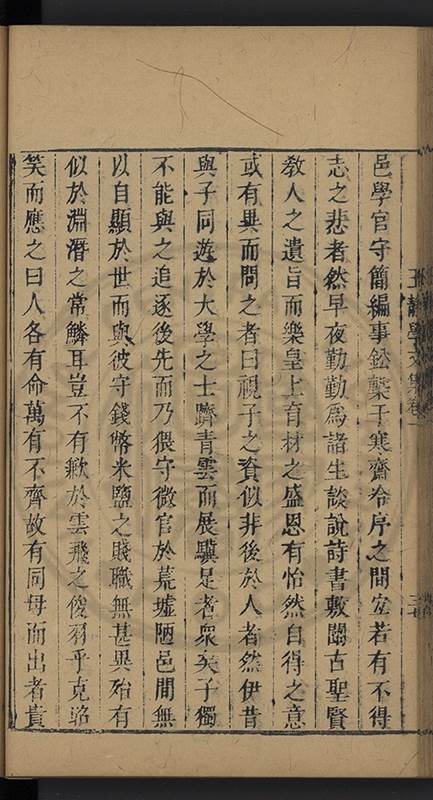 王靜學文集卷一
邑學官守簡編事鉛槧于寒齋冷序之間宜若有不得
志之悲者然早夜勤勤為諸生談說詩書敷闡古聖賢
教人之遺旨而樂皇上育材之盛恩有怡然自得之意
或有異而問之者曰視子之資似非後於人者然伊昔
與子同遊於大學之士躋青雲而展驥足者衆矣子獨
不能與之追逐後先而乃猥守微官於荒墟陋邑間無
以自顯於世而與彼守錢幣米鹽之賤職無甚異殆有
似於淵潛之常鱗耳豈不有歉於雲飛之俊羽乎克
笑而應之曰人各有命萬有不齊故有同母而出者貴